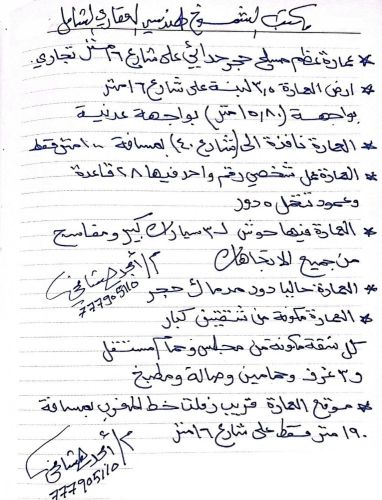 مكتب الشموخ هندسي العقاري الشامل
* عمارة عظم مسلح حجر حدائي على شارع ١٦ متر تجاري
* ارض العمارة ٣,٥ لبنة على شارع ١٦ متر
بواجهة (١٥,٨٠ متر) بواجهة عدنية
* العمارة نافذة الى (شارع ٤٠) بمسافة ١٠٠ متر فقط
* العمارة عمل شخصي رقم واحد فيها ٢٨ قاعدة
وعمود تتحمل ٥ دور
* العمارة فيها حوش لـ ٣ سيارات كبير و مفاسح
من جميع الاتجاهات
م/ أمجد
777905110
* العمارة حاليا دور حجر
* العمارة مكونة من شقتين كبار
كل شقة مكونة من مجلس وحمام مستقل
و ٣ غرف وحمامين وصالة ومطبخ
* موقع العمارة قريب زفلت خط المغرب بمسافة
١٩٠ متر فقط على شارع ١٦ متر
م/ أمجد
777905110